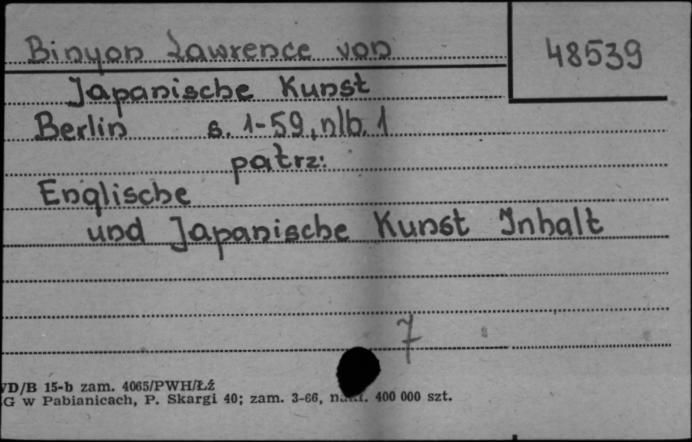 Binyon Lawrence von
48539
Japanische Kunst
Berlin s. 1-59, nlb. 1
patrz:
Englische
und Japanische Kunst Inhalt
7
VD/B 15-b zam. 4065/PWH/Łź
G w Pabianicach, P. Skargi 40; zam. 3-66, 400 000 szt.